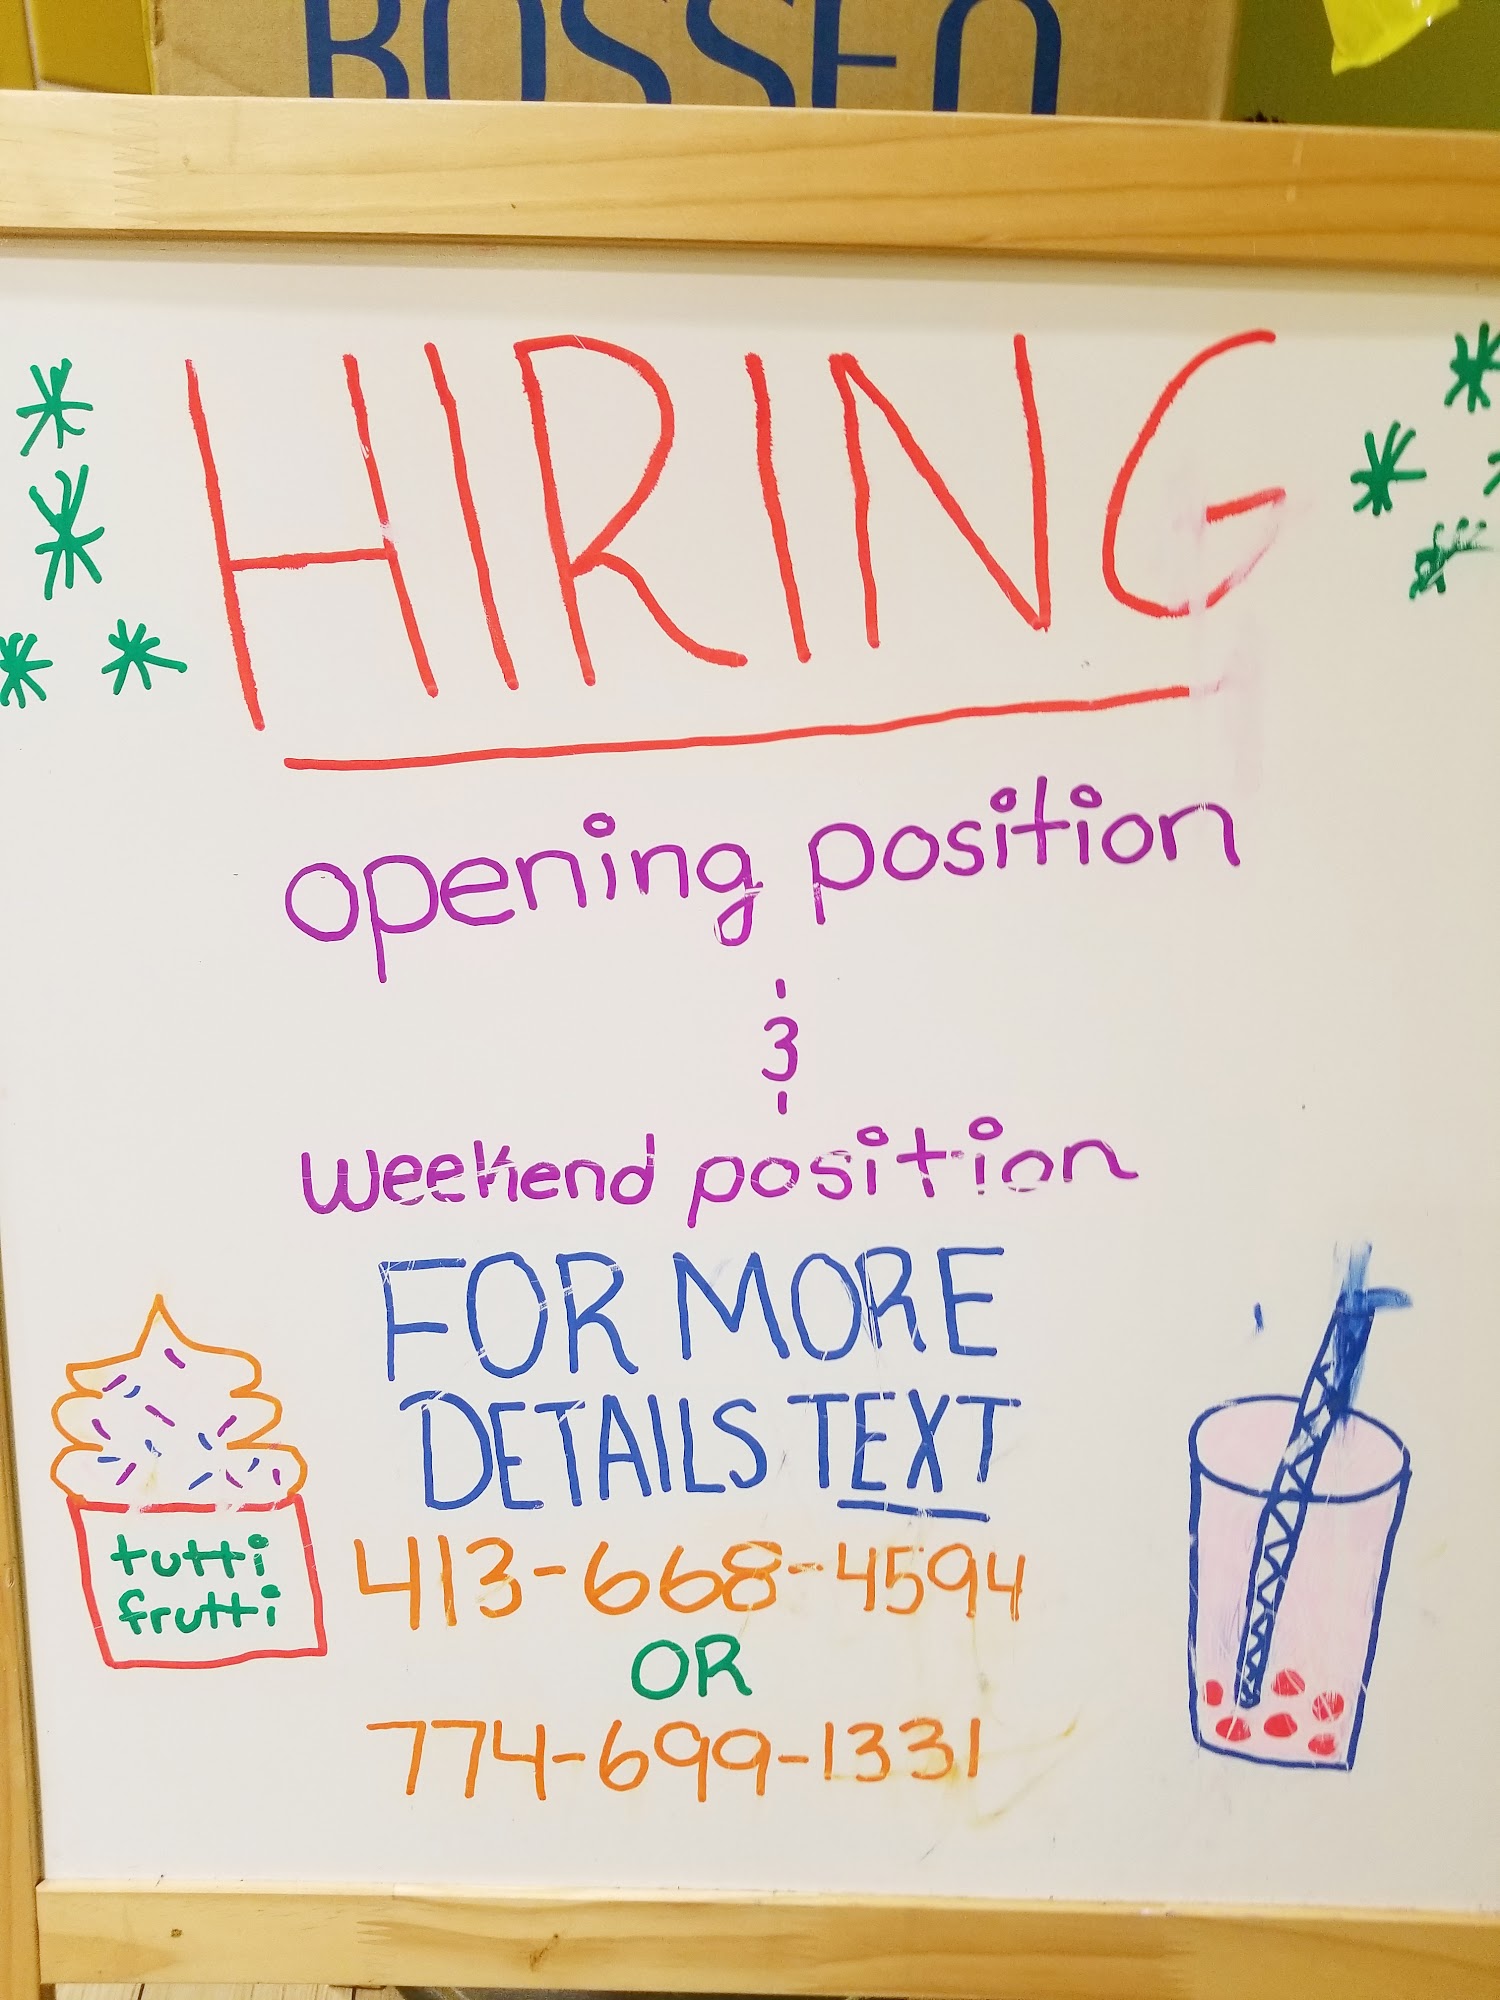 HIRING
opening position
&
weekend position
FOR MORE
DETAILS TEXT
413-668-4594
OR
774-699-1331
tutti
frutti